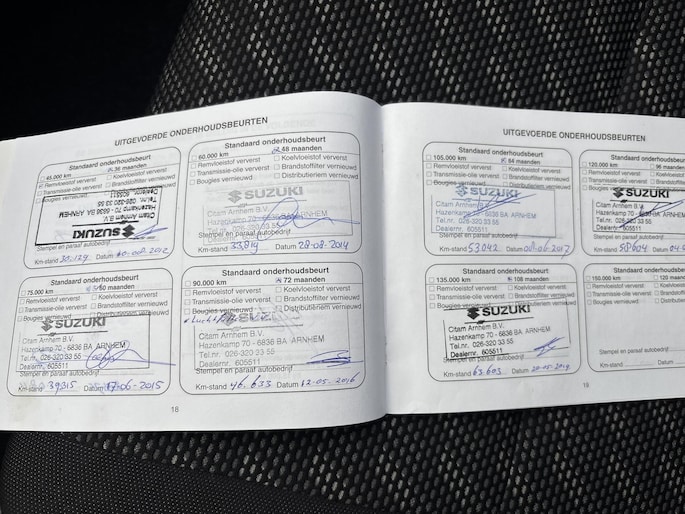 UITGEVOERDE ONDERHOUDSBEURTEN
Standaard onderhoudsbeurt
45.000 km 36 maanden
Remvloeistof ververst Koelvloeistof ververst
Transmissie-olie ververst Brandstoffilter vernieuwd
Bougies vernieuwd
SUZUKI
Citam Arnhem B.V.
Hazenkamp 70 - 6836 BA ARNHEM
Tel.nr. 026-320 33 55
Dealernr. 605511
Stempel en paraaf autobedrijf
Km-stand 30.129 Datum
Standaard onderhoudsbeurt
60.000 km 48 maanden
Remvloeistof ververst Koelvloeistof ververst
Transmissie-olie ververst Brandstoffilter vernieuwd
Bougies vernieuwd Distributieriem vernieuwd
SUZUKI
Citam Arnhem B.V.
Hazenkamp 70 - 6836 BA ARNHEM
Tel.nr. 026-320 33 55
Dealernr. 605511
Stempel en paraaf autobedrijf
Km-stand 33,819 Datum 28-08-2014
Standaard onderhoudsbeurt
75.000 km 60 maanden
Remvloeistof ververst Koelvloeistof ververst
Transmissie-olie ververst Brandstoffilter vernieuwd
Bougies vernieuwd Distributieriem vernieuwd
SUZUKI
Citam Arnhem B.V.
Hazenkamp 70 - 6836 BA ARNHEM
Tel.nr. 026-320 33 55
Dealernr. 605511
Stempel en paraaf autobedrijf
Km-stand 39315 Datum 17-06-2015
Standaard onderhoudsbeurt
90.000 km 72 maanden
Remvloeistof ververst Koelvloeistof ververst
Transmissie-olie ververst Brandstoffilter vernieuwd
Bougies vernieuwd Distributieriem vernieuwd
SUZUKI
Citam Arnhem B.V.
Hazenkamp 70 - 6836 BA ARNHEM
Tel.nr. 026-320 33 55
Dealernr. 605511
Stempel en paraaf autobedrijf
Km-stand 46.633 Datum 12-05-2016
18
UITGEVOERDE ONDERHOUDSBEURTEN
Standaard onderhoudsbeurt
105.000 km 84 maanden
Remvloeistof ververst Koelvloeistof ververst
Transmissie-olie ververst Brandstoffilter vernieuwd
Bougies vernieuwd Distributieriem vernieuwd
SUZUKI
Citam Arnhem B.V.
Hazenkamp 70 - 6836 BA ARNHEM
Tel.nr. 026-320 33 55
Dealernr. 605511
Stempel en paraaf autobedrijf
Km-stand 53.042 Datum 08-06-2017
Standaard onderhoudsbeurt
120.000 km 96 maanden
Remvloeistof ververst
Transmissie-olie ververst
Bougies vernieuwd
SUZUKI
Citam Arnhem B.V.
Hazenkamp 70 - 6836 BA ARNHEM
Tel.nr. 026-320 33 55
Dealernr. 605511
Stempel en paraaf autobedrijf
Km-stand 58604 Datum
Standaard onderhoudsbeurt
135.000 km 108 maanden
Remvloeistof ververst Koelvloeistof ververst
Transmissie-olie ververst Brandstoffilter vernieuwd
Bougies vernieuwd Distributieriem vernieuwd
SUZUKI
Citam Arnhem B.V.
Hazenkamp 70 - 6836 BA ARNHEM
Tel.nr. 026-320 33 55
Dealernr. 605511
Stempel en paraaf autobedrijf
Km-stand 63.603 Datum
Standaard onderhoudsbeurt
150.000 km 120
Remvloeistof ververst
Transmissie-olie ververst
Bougies vernieuwd
Stempel en paraaf autobedrijf
Km-stand Datum
18